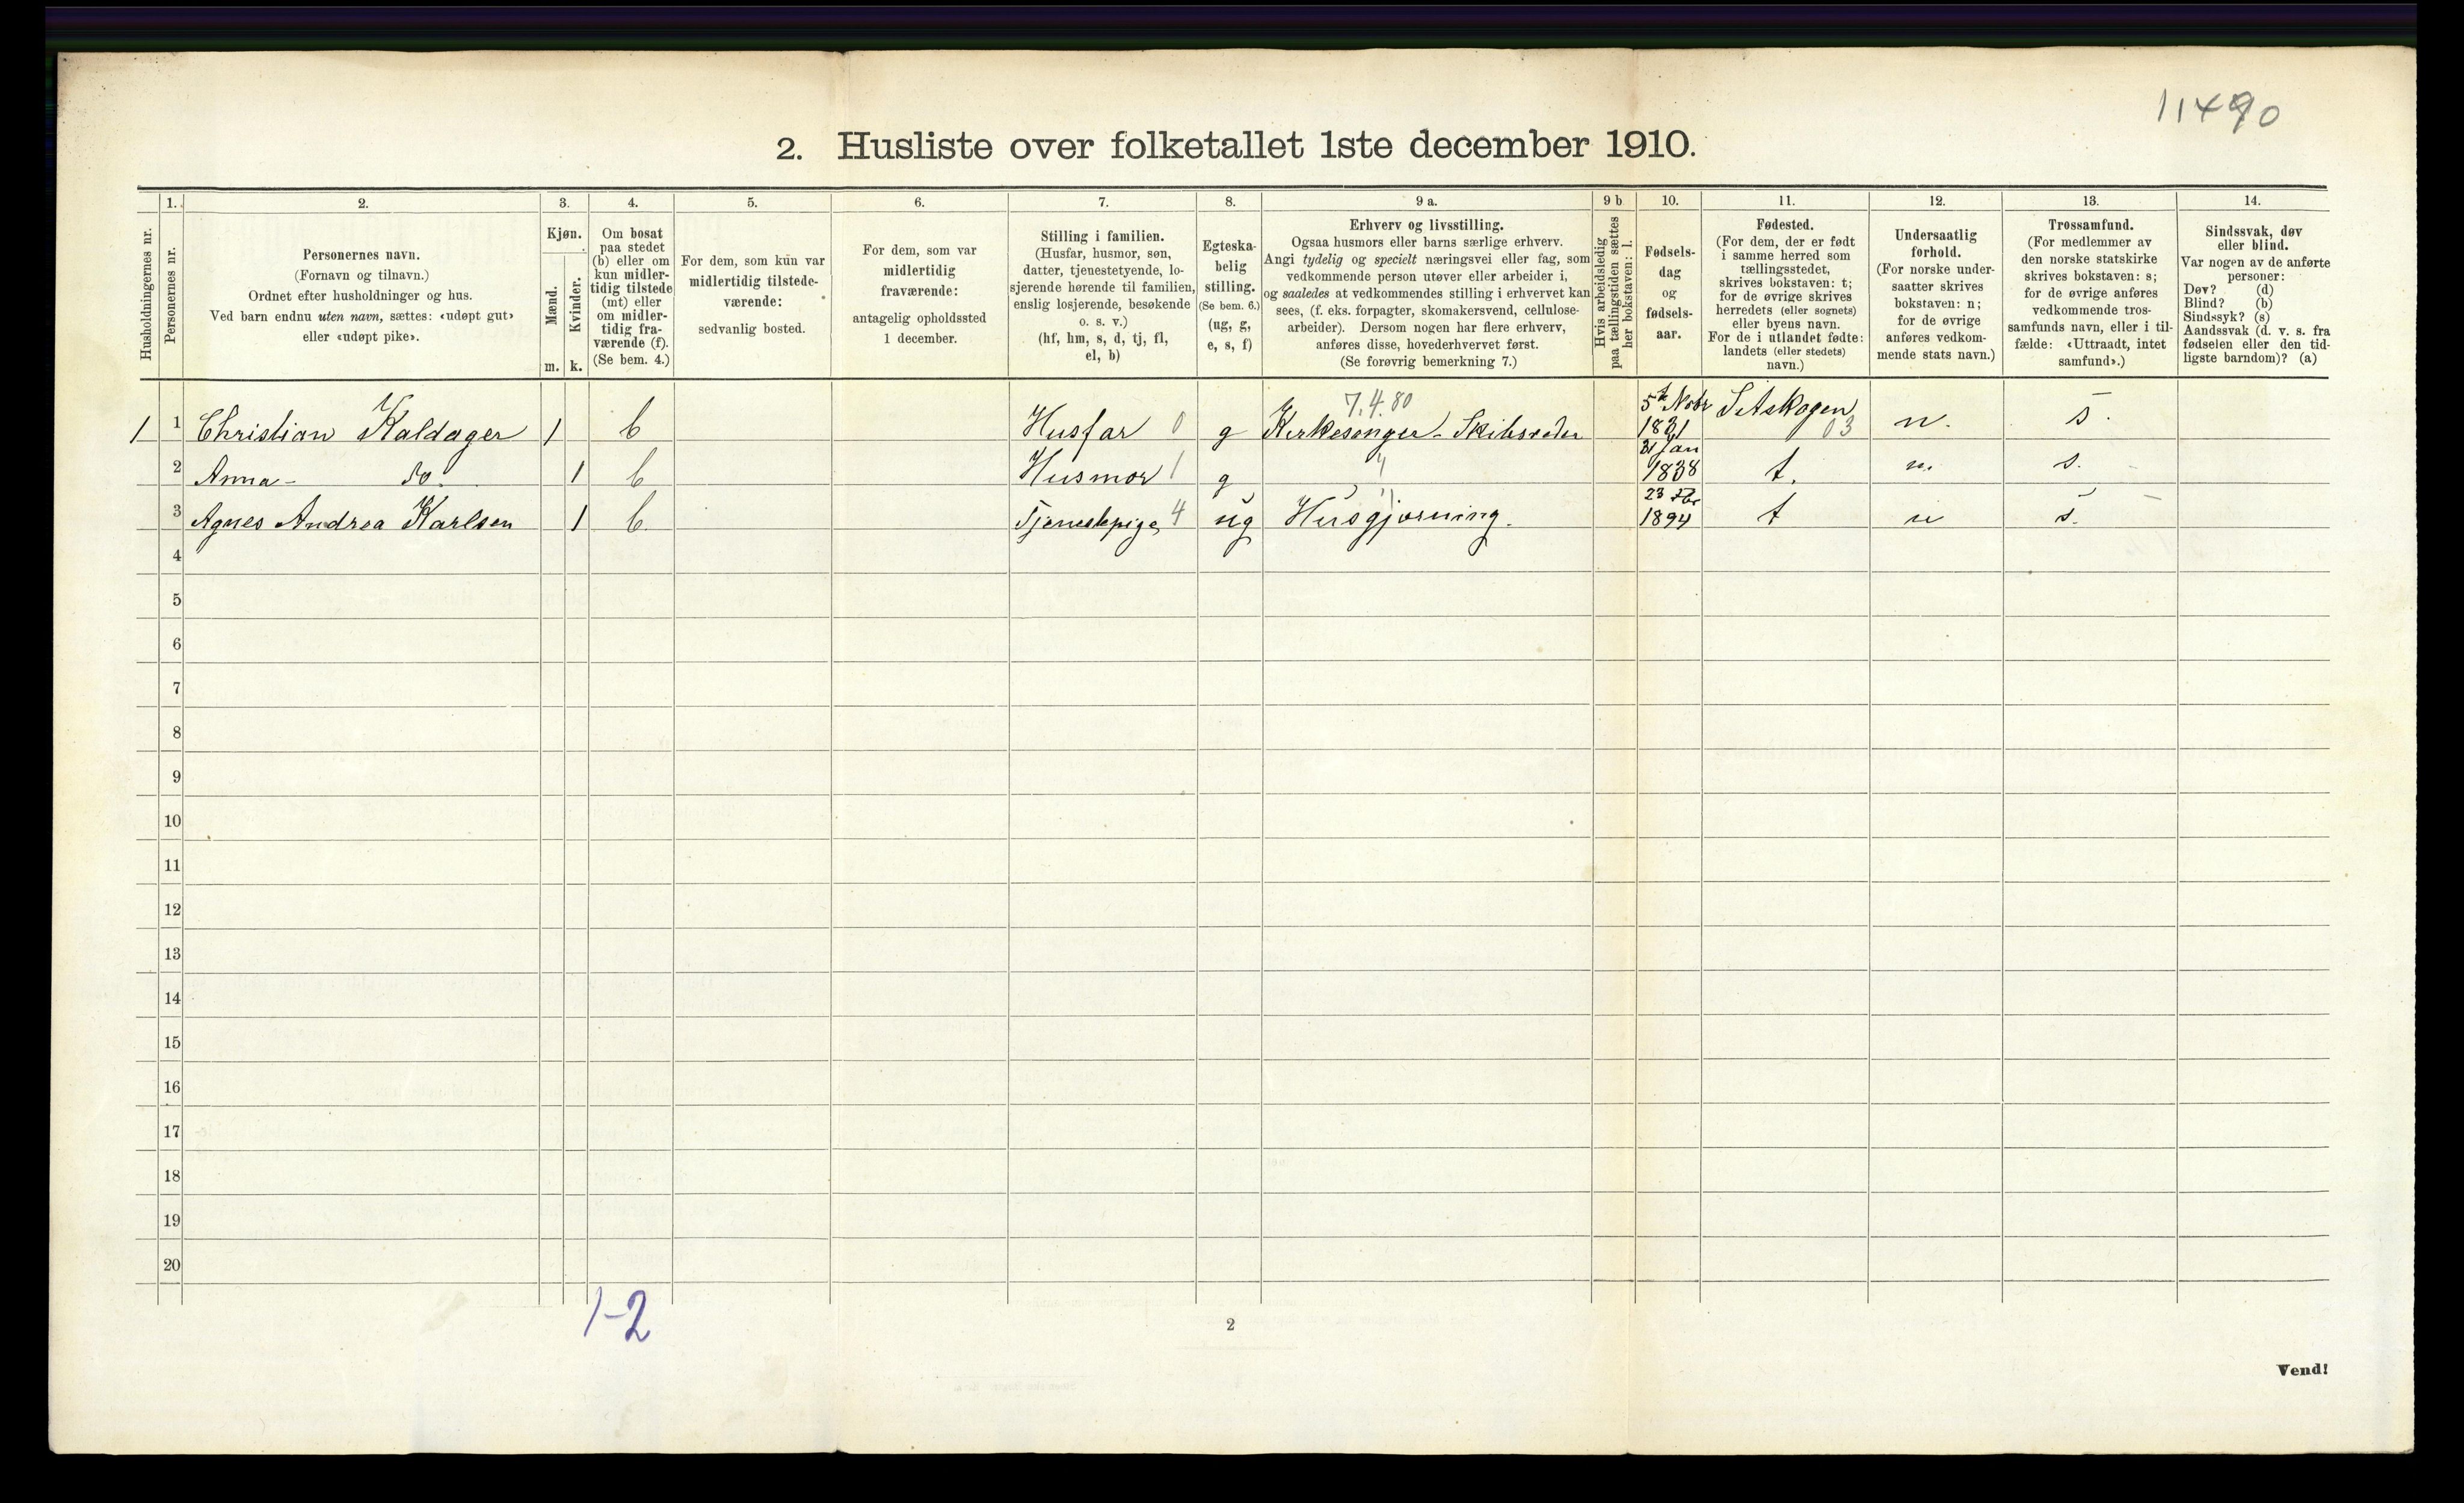 11490
2. Husliste over folketallet 1ste december 1910.
Husholdningernes nr.
1.
Personernes nr.
2.
Personernes navn.
(Fornavn og tilnavn.)
Ordnet efter husholdninger og hus.
Ved barn endnu uten navn, sættes: «udøpt gut»
eller «udøpt pike».
3.
Kjøn.
Mænd.
Kvinder.
m. k.
4.
Om bosat
paa stedet
(b) eller om
kun midler-
tidig tilstede
(mt) eller
om midler-
tidig fra-
værende (f).
(Se bem. 4.)
5.
For dem, som kun var
midlertidig tilstede-
værende:
sedvanlig bosted.
6.
For dem, som var
midlertidig
fraværende:
antagelig opholdssted
1 december.
7.
Stilling i familien.
(Husfar, husmor, søn,
datter, tjenestetyende, lo-
sjerende hørende til familien,
enslig losjerende, besøkende
o. s. v.)
(hf, hm, s, d, tj, fl,
el, b)
8.
Egteska-
belig
stilling.
(Se bem. 6.)
(ug, g,
e, s, f)
9 a.
Erhverv og livsstilling.
Ogsaa husmors eller barns særlige erhverv.
Angi tydelig og specielt næringsvei eller fag, som
vedkommende person utøver eller arbeider i,
og saaledes at vedkommendes stilling i erhvervet kan
sees, (f. eks. forpagter, skomakersvend, cellulose-
arbeider). Dersom nogen har flere erhverv,
anføres disse, hovederhvervet først.
(Se forøvrig bemerkning 7.)
9 b
Hvis arbeidsledig
paa tællingstiden sættes
her bokstaven: l.
10.
Fødsels-
dag
og
fødsels-
aar.
11.
Fødested.
(For dem, der er født
i samme herred som
tællingsstedet,
skrives bokstaven: t;
for de øvrige skrives
herredets (eller sognets)
eller byens navn.
For de i utlandet fødte:
landets (eller stedets)
navn.)
12.
Undersaatlig
forhold.
(For norske under-
saatter skrives
bokstaven: n;
for de øvrige
anføres vedkom-
mende stats navn.)
13.
Trossamfund.
(For medlemmer av
den norske statskirke
skrives bokstaven: s;
for de øvrige anføres
vedkommende tros-
samfunds navn, eller i til-
fælde: «Uttraadt, intet
samfund».)
14.
Sindssvak, døv
eller blind.
Var nogen av de anførte
personer:
Døv? (d)
Blind? (b)
Sindssyk? (s)
Aandssvak (d. v. s. fra
fødselen eller den tid-
ligste barndom)? (a)
7.4.80
1 1 Christian Kaldager 1 b Husfar 0 g Kirkesanger - Skibsreder 5te Nobr 1831 Setskogen 03 n. s.
2 Anna - do. 1 b Husmor 1 g 21 Jan 1838 t. n. s.
3 Agnes Andrea Karlsen 1 b. Tjenestepige 4 ug Husgjørning. 23 1894 t n s.
4
5
6
7
8
9
10
11
12
13
14
15
16
17
18
19
20
1-2
2
Vend!